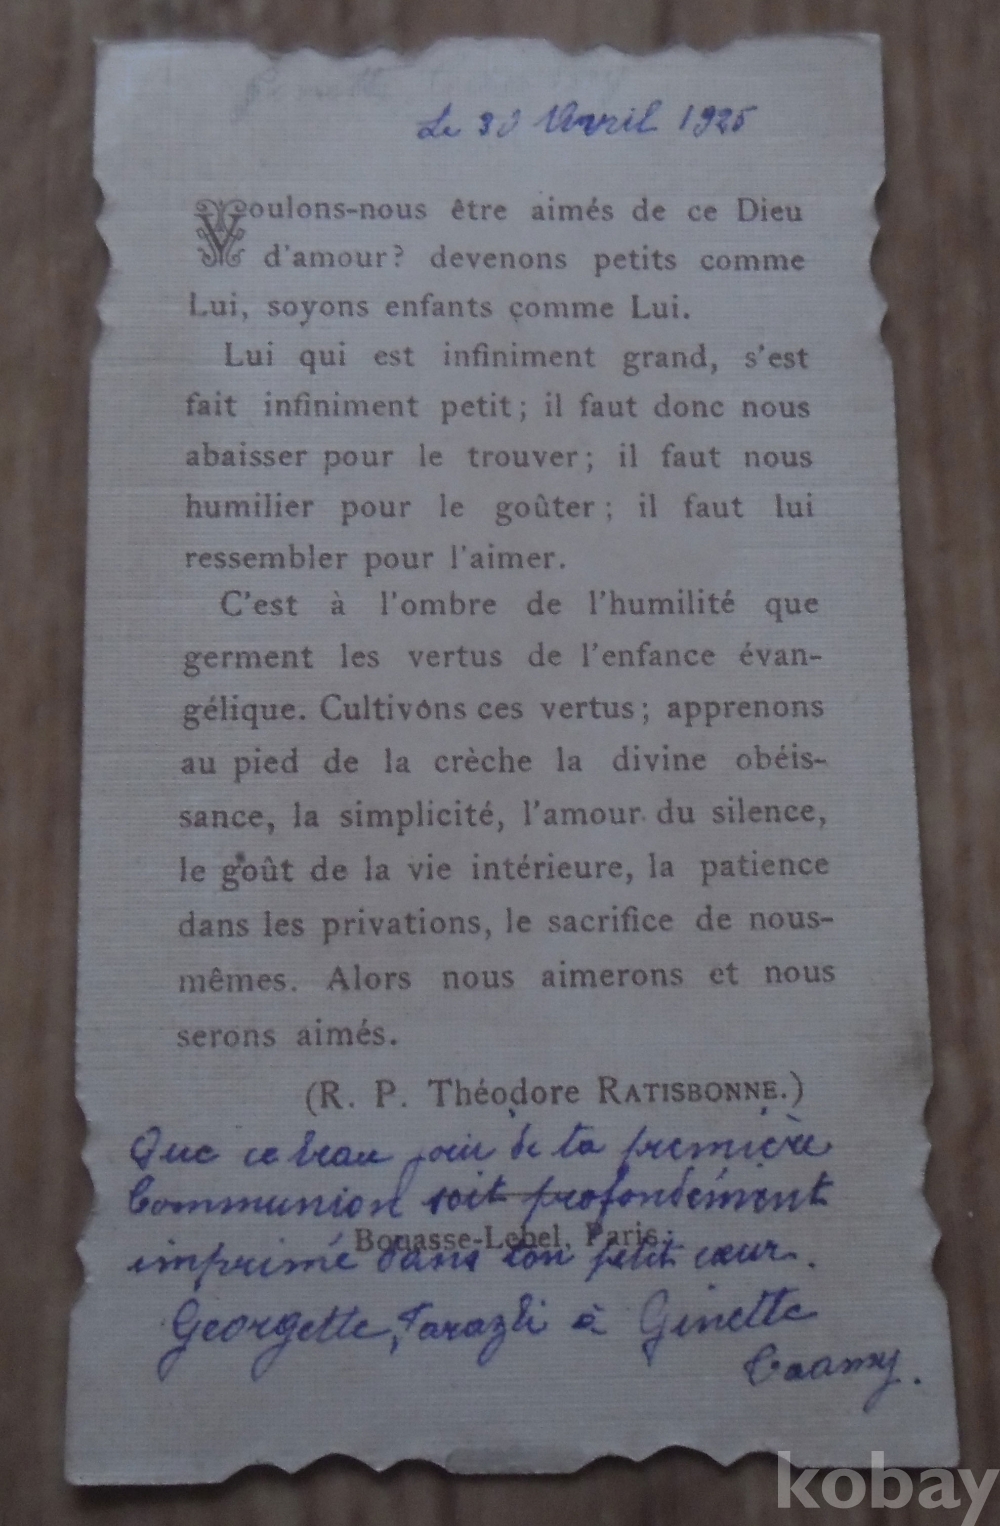 Le 30 Avril 1925
Voulons-nous être aimés de ce Dieu
d'amour? devenons petits comme
Lui, soyons enfants comme Lui.
Lui qui est infiniment grand, s'est
fait infiniment petit; il faut donc nous
abaisser pour le trouver; il faut nous
humilier pour le goûter; il faut lui
ressembler pour l'aimer.
C'est à l'ombre de l'humilité que
germent les vertus de l'enfance évan-
gélique. Cultivons ces vertus; apprenons
au pied de la crèche la divine obéis-
sance, la simplicité, l'amour du silence,
le goût de la vie intérieure, la patience
dans les privations, le sacrifice de nous-
mêmes. Alors nous aimerons et nous
serons aimés.
(R. P. Théodore RATISBONNE.)
Que ce beau jour de ta première
Communion soit profondément
Bouasse-Lebel, Paris.
imprimé dans ton petit cœur.
Georgette Tarazli à Ginette
kobay